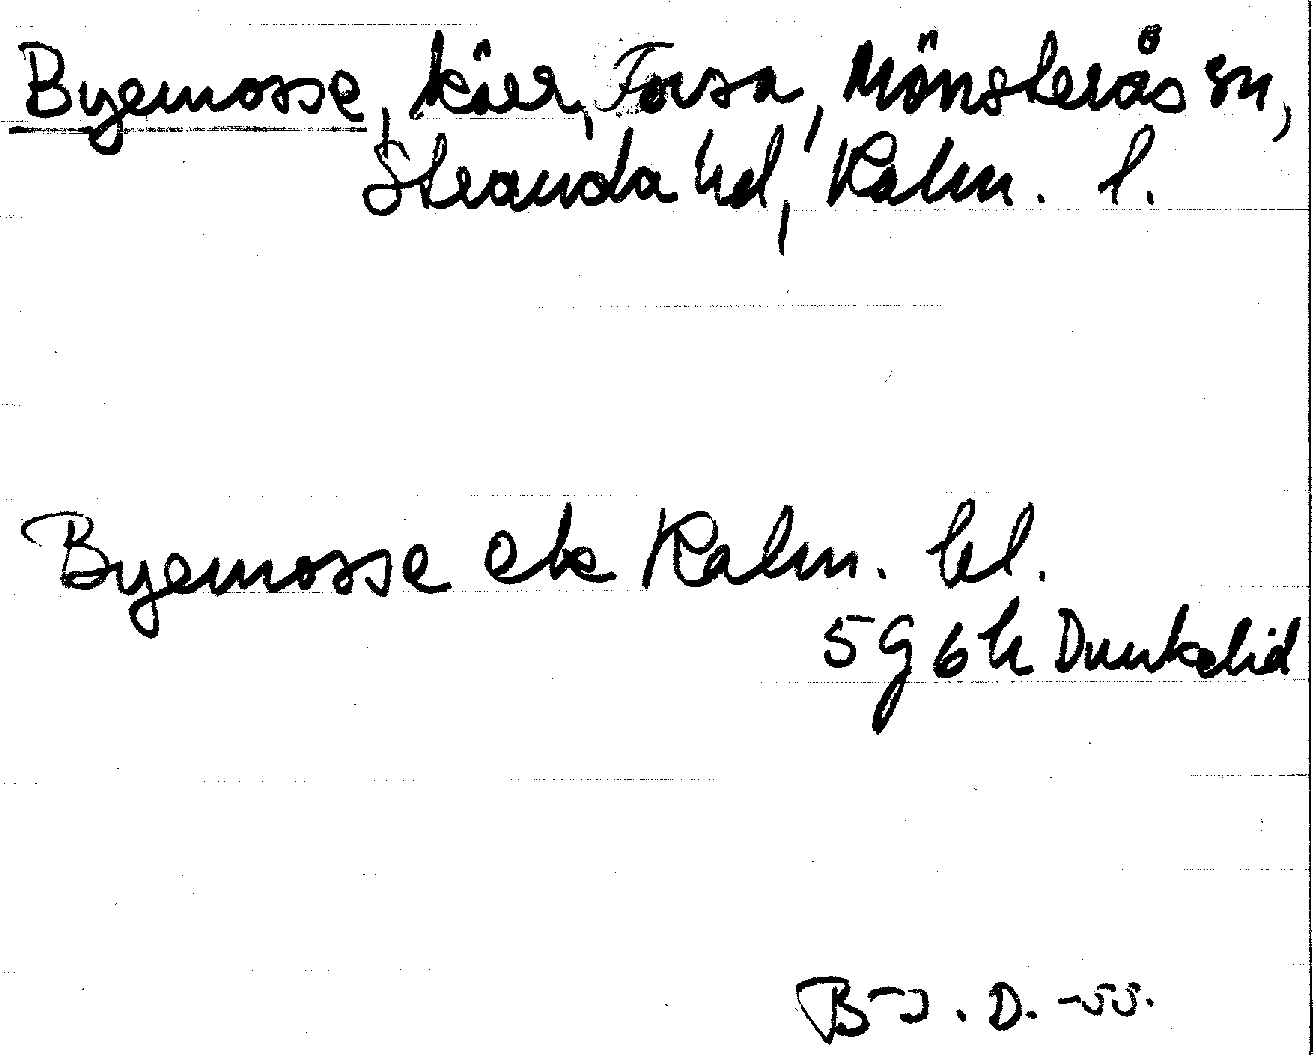 Byemosse, kärr, Forsa, Mönsterås sn,
Stranda hd, Kalm. l.
Byemosse ek Kalm. bl.
5 G 6 h Dunkelid
B-J. D. -55.